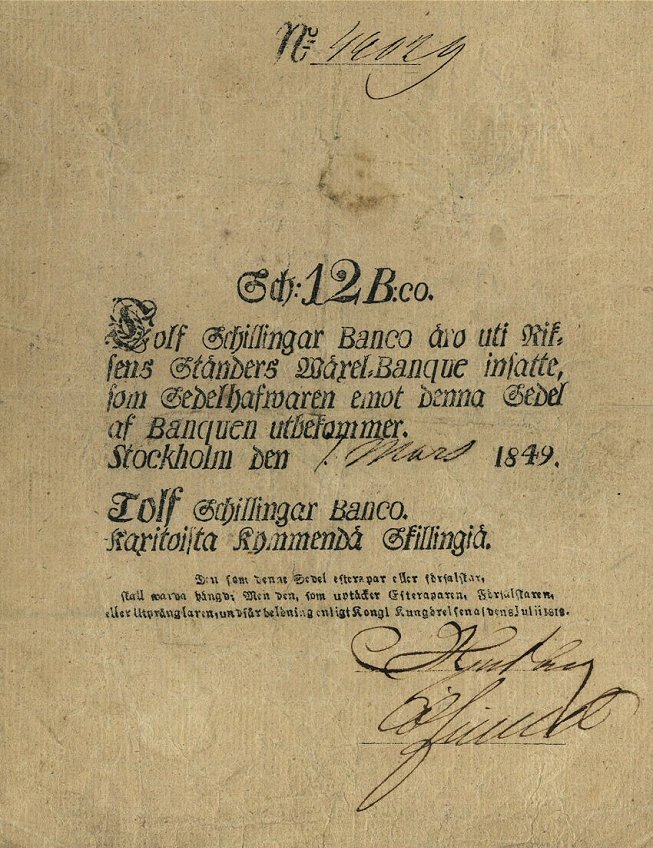 N:o 49029
Sch: 12 B:co.
Tolf Schillingar Banco äro uti Rik-
sens Ständers Wäxel-Banque insatte,
som Sedelhafwaren emot denna Sedel
af Banquen utbekommer.
Stockholm den 1. Mars 1849.
Tolf Schillingar Banco.
Kaxitoista Kymmendä Skillingiä.
Den som denne Sedel efterapar eller förfalskar,
skall warda hängd; Men den, som uptäcker Efteraparen, Förfalskaren,
eller Utprånglaren, undfår belöning enligt Kongl Kungörelsen af den 8 Julii 1818.